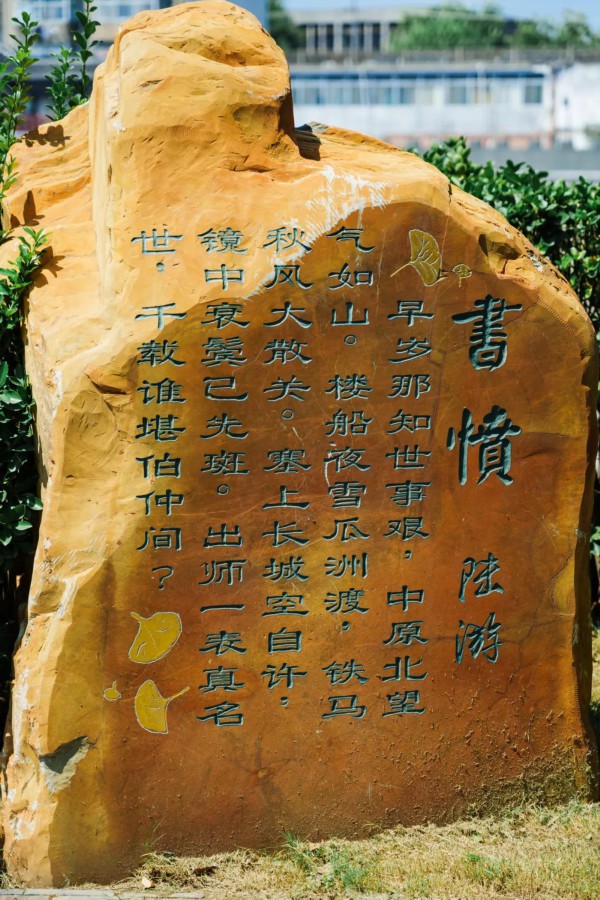 書憤 陆游
早岁那知世事艰，中原北望
气如山。楼船夜雪瓜洲渡，铁马
秋风大散关。塞上长城空自许，
镜中衰鬓已先斑。出师一表真名
世，千载谁堪伯仲间？